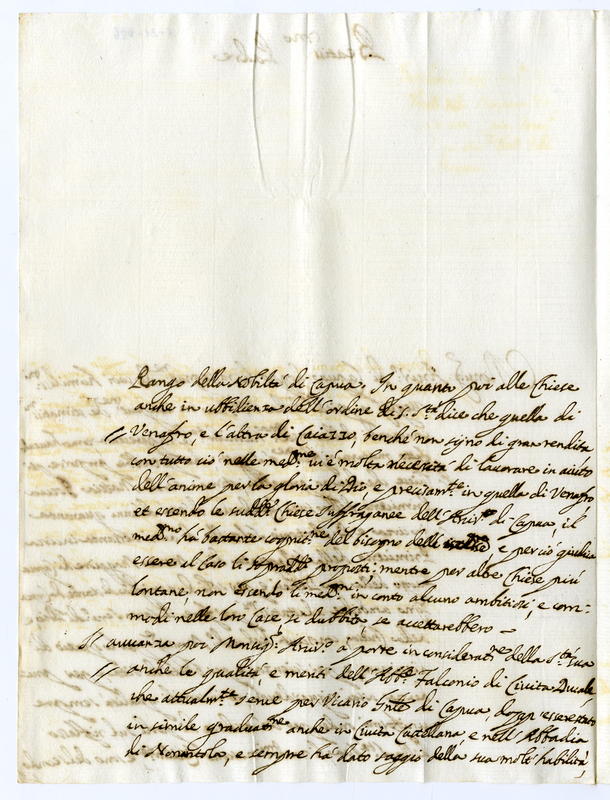 Rango della Nobiltà di Capua. In quanto poi alle Chiese
anche in ubbidienza dell'ordine di S. Stà dice che quella di
// Venafro, e l'altra di Caiazzo, benche non siano di gran rendita,
con tutto ciò nelle medme: vi è molta necessità di lavorare in aiuto
dell'anime per la gloria di Dio, e precisamte: in quella di Venafro
et essendo le sudde: Chiese suffraganee dell'Arcivo di Capua, il
medmo: hà bastante cognitne: del bisogno delle, e perciò giudica
essere il caso li sopradti: proposti: mentre per altre Chiese più
lontane, non essendo li medmi: in conto alcuno ambitiosi, e com-
modi nelle loro Case, si dubbita, se accettarebbero –
// avvanza poi Monsigr: Arcivo à porre in consideratne della Stà sua
// anche le qualità, e meriti dell'Abbe: Falconio di Civita Ducale,
che attualmte: serve per Vicario Gnle di Capua, dopo essere stato
in simile graduatne: anche in Civita Castellana e nell'Abbadia
di Nonantola, e sempre hà dato saggio della sua molt' habilità,